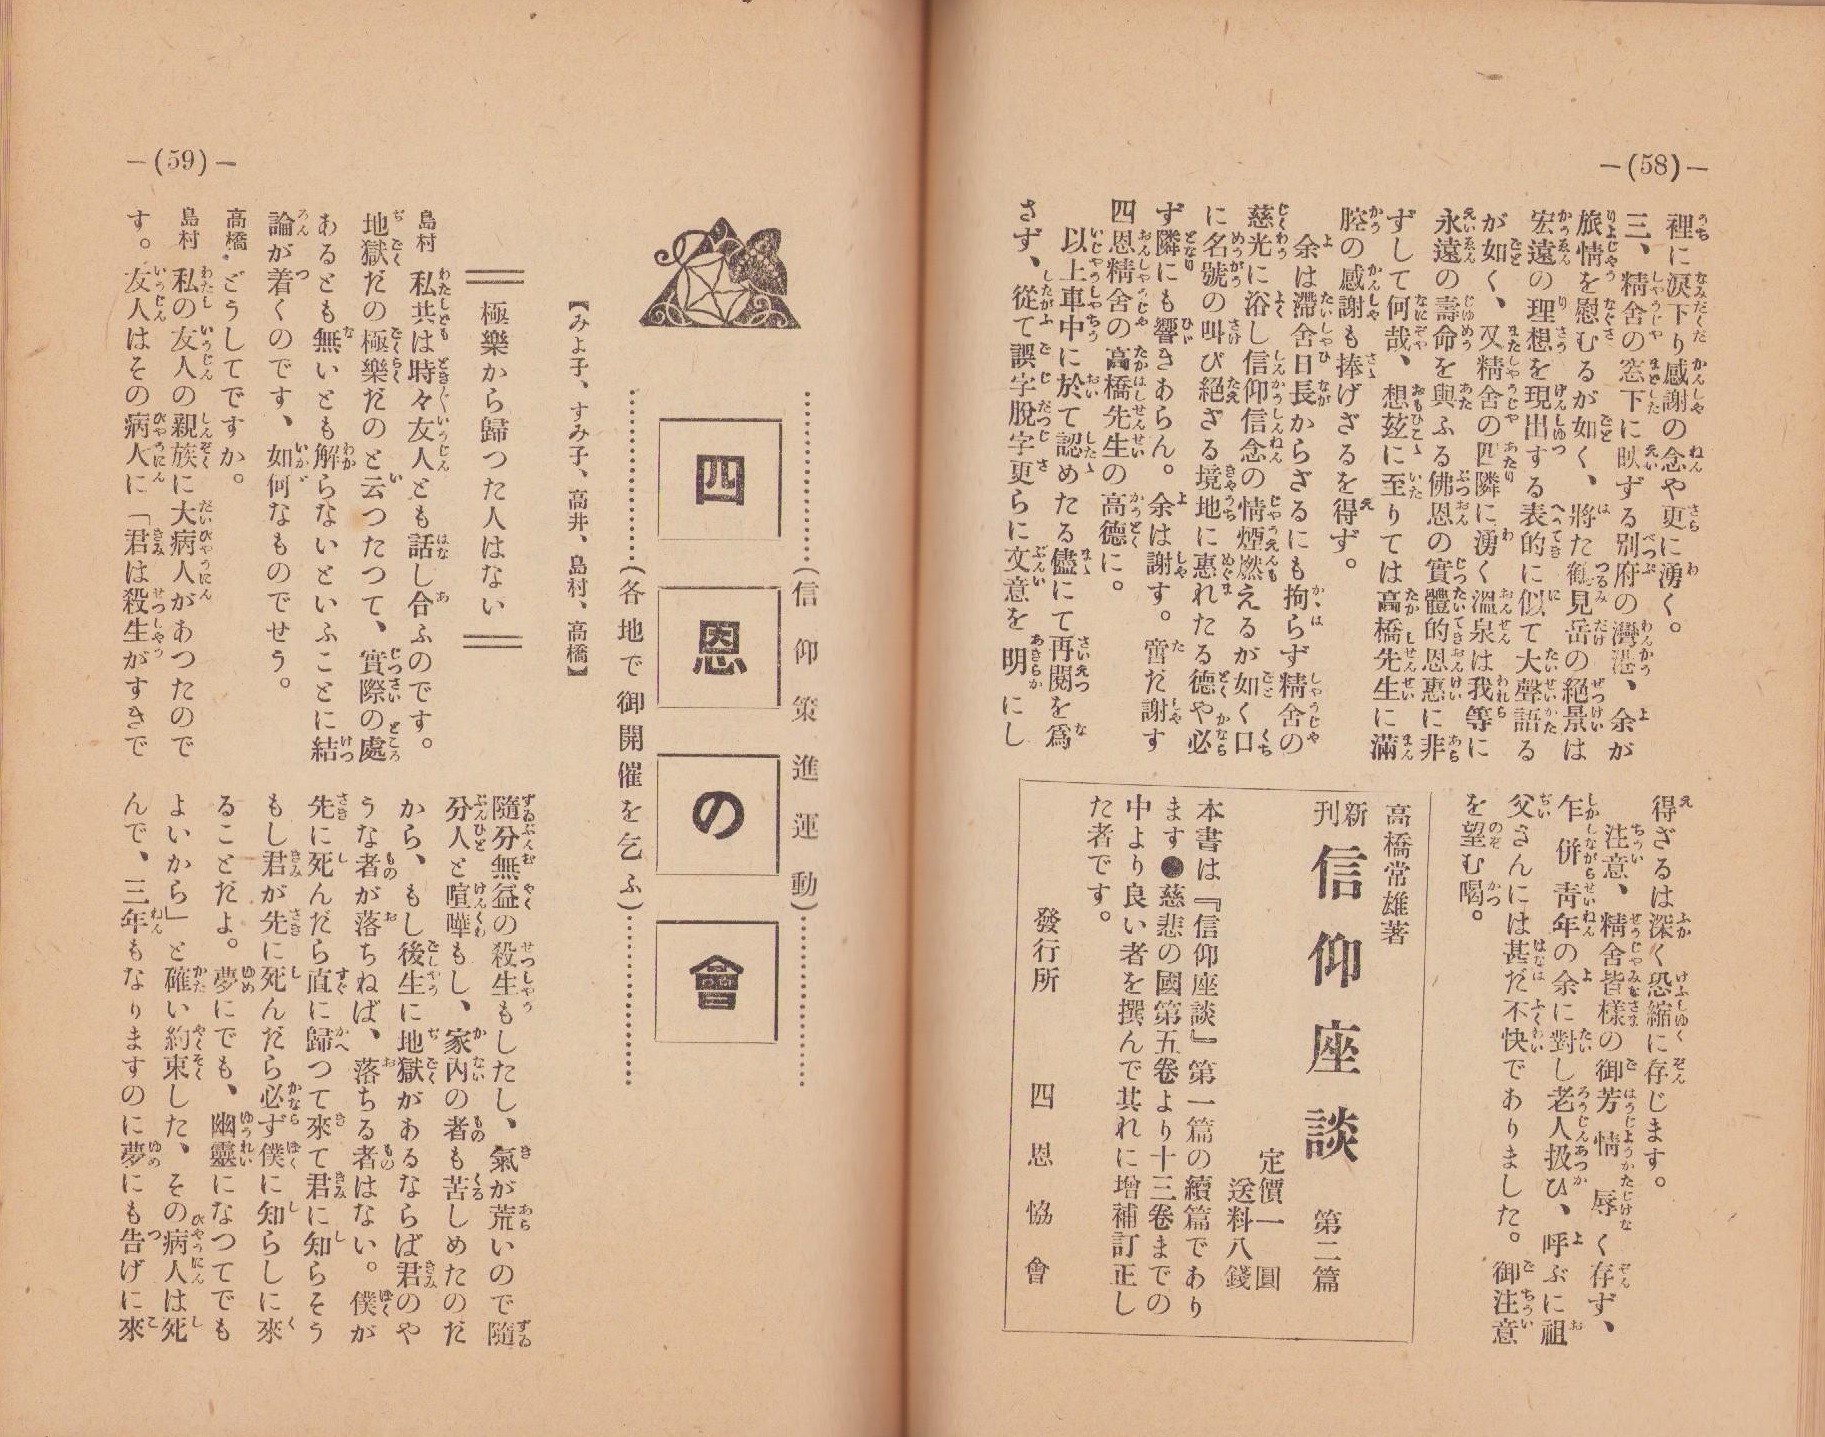 —(58)—
裡に涙下り感謝の念や更に湧く。
三、精舍の窓下に映ずる別府の灣港、余が
旅情を慰むるが如く、將た鶴見岳の絕景は
宏遠の理想を現出する表的に似て大聲語る
が如く、又精舍の四隣に湧く溫泉は我等に
永遠の壽命を與ふる佛恩の實體的恩惠に非
ずして何哉、想玆に至りては高橋先生に滿
腔の感謝も捧げざるを得ず。
余は滯舍日長からざるにも拘らず精舍の
慈光に浴し信仰信念の情煙燃えるが如く口
に名號の叫び絕ざる境地に惠れたる德や必
ず隣にも響きあらん。余は謝す。啻だ謝す
四恩精舍の高橋先生の高德に。
以上車中に於て認めたる儘にて再閱を爲
さず、從て誤字脫字更らに文意を明にし
得ざるは深く恐縮に存じます。
注意、精舍皆樣の御芳情辱く存ず、
乍併靑年の余に對し老人扱ひ、呼ぶに祖
父さんには甚だ不快でありました。御注意
を望む喝。
高橋常雄著
新刊 信仰座談 第二篇
定價一圓
送料八錢
本書は『信仰座談』第一篇の續篇であり
ます●慈悲の國第五卷より十三卷までの
中より良い者を撰んで其れに增補訂正し
た者です。
發行所 四恩協會
—(59)—
(信仰策進運動)
四恩の會
(各地で御開催を乞ふ)
【みよ子、すみ子、高井、島村、高橋】
極樂から歸つた人はない
島村 私共は時々友人とも話し合ふのです。
地獄だの極樂だのと云つたつて、實際の處
あるとも無いとも解らないといふことに結
論が着くのです、如何なものでせう。
高橋. どうしてですか。
島村 私の友人の親族に大病人があつたので
す。友人はその病人に「君は殺生がすきで
隨分無益の殺生もしたし、氣が荒いので隨
分人と喧嘩もし、家內の者も苦しめたのだ
から、もし後生に地獄があるならば君のや
うな者が落ちねば、落ちる者はない。僕が
先に死んだら直に歸つて來て君に知らそう
もし君が先に死んだら必ず僕に知らしに來
ることだよ。夢にでも、幽靈になつてでも
よいから」と確い約束した、その病人は死
んで、三年もなりますのに夢にも告げに來